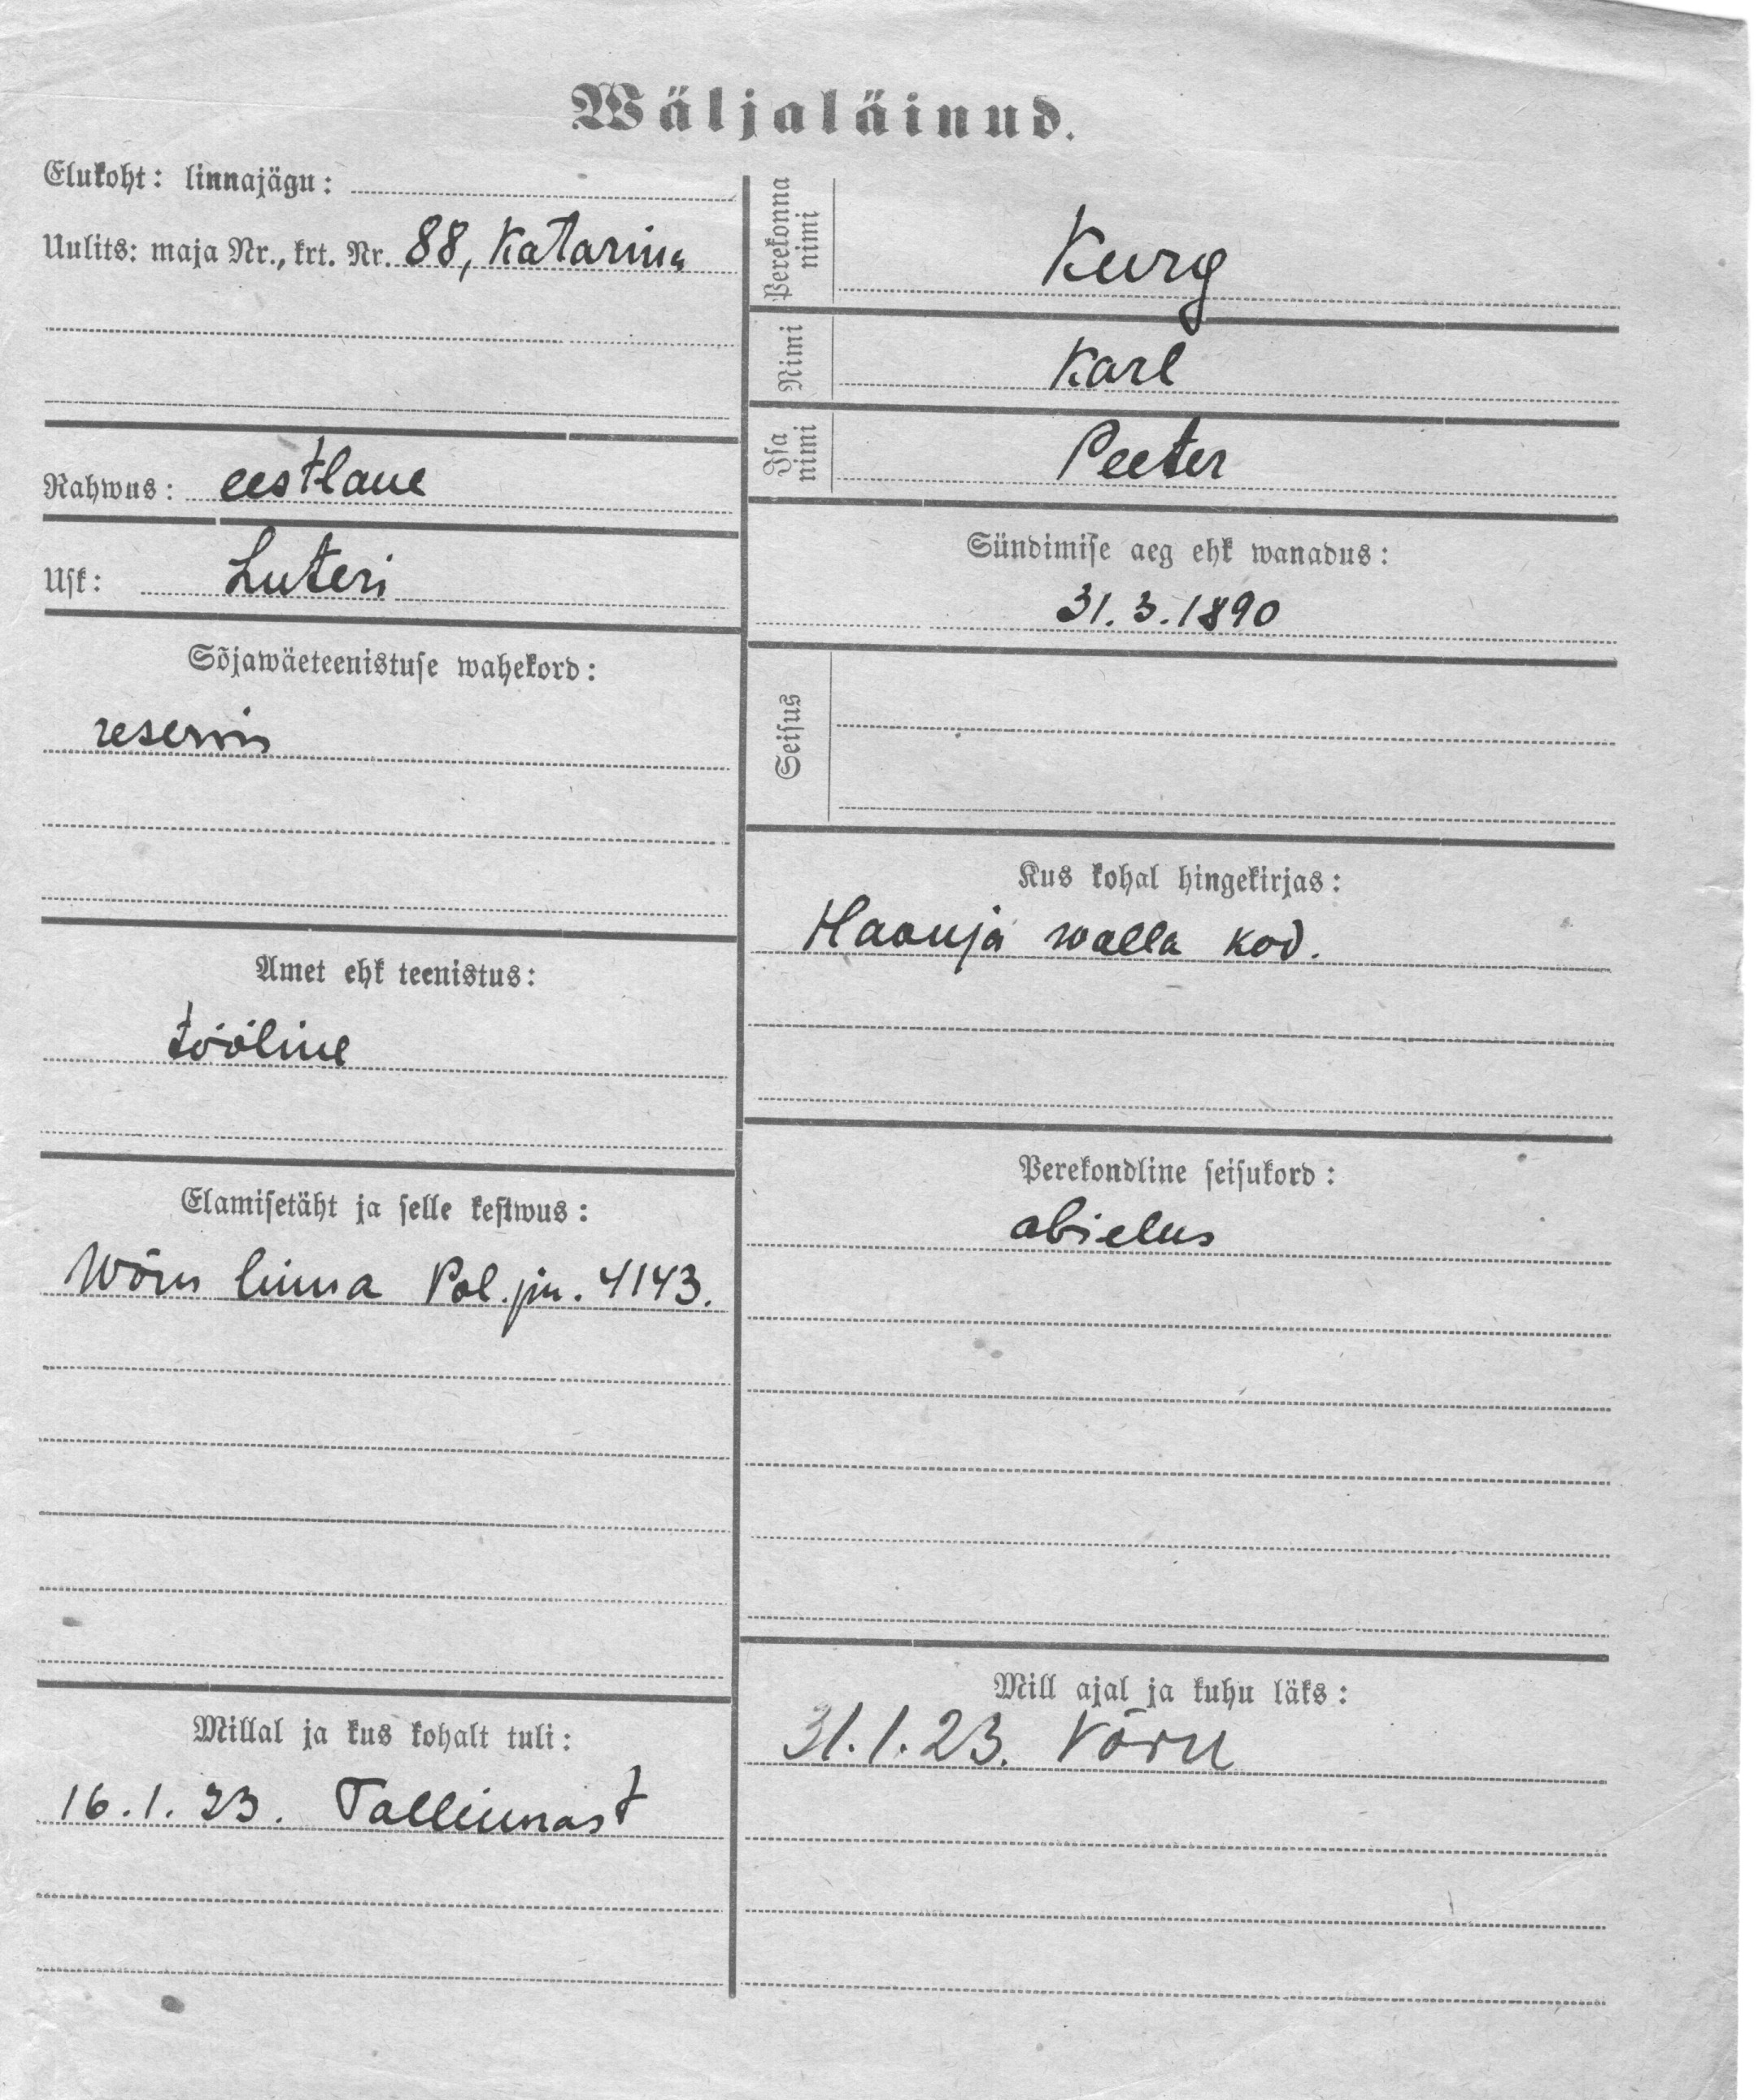 Wäljaläinud.
Elukoht: linnajägu:
Uulits: maja Nr., krt. Nr. 88, Katarina
Rahwus: eestlane
Usk: Luteri
Sõjawäeteenistuse wahekord:
reservis
Amet ehk teenistus:
tööline
Elamisetäht ja selle kestwus:
Wõru linna Pol. jsk. 4143.
Millal ja kus kohalt tuli:
16.1.23. Tallinnast
Perekonna
nimi
Kurg
Nimi
Karl
Isa
nimi
Peeter
Sündimise aeg ehk wanadus:
31.3.1890
Seisus
Kus kohal hingekirjas:
Haanja walla kod.
Perekondline seisukord:
abielus
Mill ajal ja kuhu läks:
31.1.23. Võru